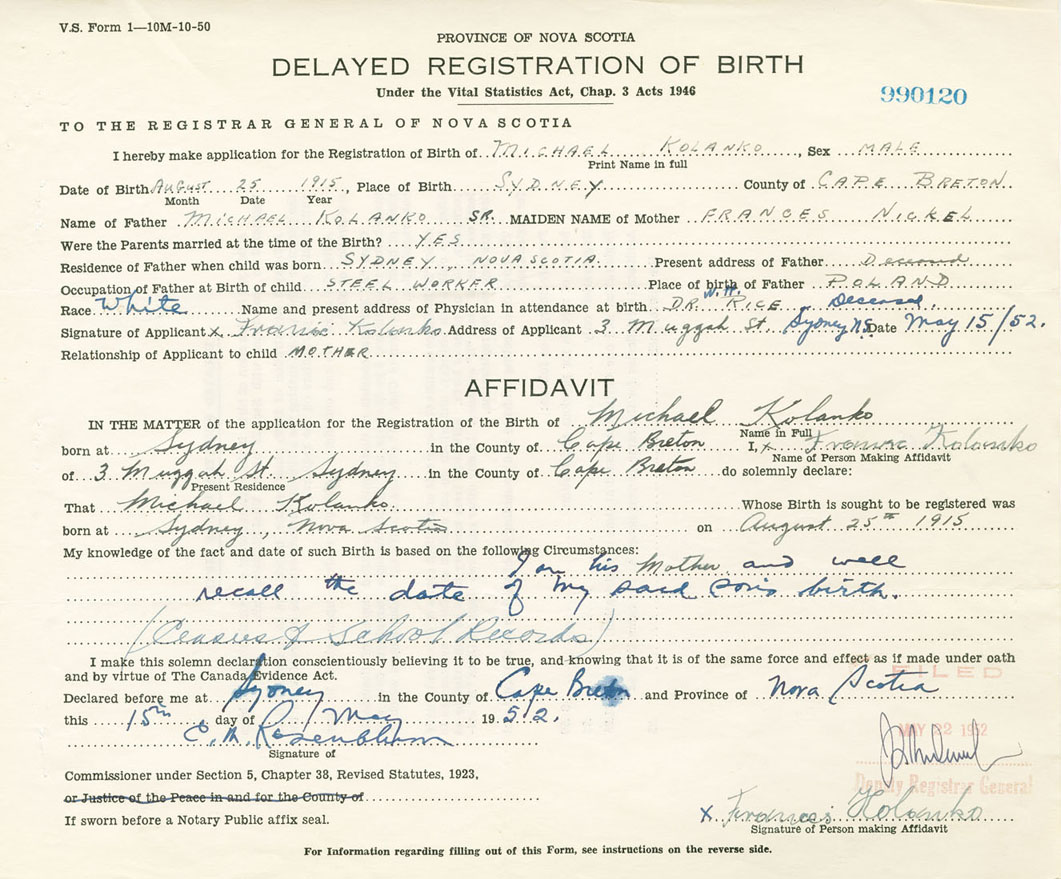 V.S. Form 1—10M-10-50
PROVINCE OF NOVA SCOTIA
DELAYED REGISTRATION OF BIRTH
Under the Vital Statistics Act, Chap. 3 Acts 1946
990120
TO THE REGISTRAR GENERAL OF NOVA SCOTIA
I hereby make application for the Registration of Birth of MICHAEL KOLANKO, Sex MALE
Print Name in full
Date of Birth AUGUST 25 1915, Place of Birth SYDNEY County of CAPE BRETON
Month Date Year
Name of Father MICHAEL KOLANKO SR. MAIDEN NAME of Mother FRANCES NICKEL
Were the Parents married at the time of the Birth? YES
Residence of Father when child was born SYDNEY, NOVA SCOTIA Present address of Father Deceased
Occupation of Father at Birth of child STEEL WORKER Place of birth of Father POLAND
Race White Name and present address of Physician in attendance at birth DR. W.H. RICE Deceased.
Signature of Applicant x Francis Kolanko Address of Applicant 3 Muggah St. Sydney NS Date May 15/52.
Relationship of Applicant to child MOTHER
AFFIDAVIT
IN THE MATTER of the application for the Registration of the Birth of Michael Kolanko
Name in Full
born at Sydney in the County of Cape Breton I, x Kolanko
Name of Person Making Affidavit
of 3 Muggah St. Sydney in the County of Cape Breton do solemnly declare:
Present Residence
That Michael Kolanko Whose Birth is sought to be registered was
born at Sydney, Nova Scotia on August 25th 1915
My knowledge of the fact and date of such Birth is based on the following Circumstances:
I am his Mother and well
recall the date of my said son's birth.
(Census & School Records)
I make this solemn declaration conscientiously believing it to be true, and knowing that it is of the same force and effect as if made under oath
and by virtue of The Canada Evidence Act.
FILED
Declared before me at Sydney in the County of Cape Breton and Province of Nova Scotia
this 15th day of May 1952.
MAY 22 1952
C. M. Rosenblum
Signature of
Deputy Registrar General
Commissioner under Section 5, Chapter 38, Revised Statutes, 1923,
or Justice of the Peace in and for the County of
x Francis Kolanko
Signature of Person making Affidavit
If sworn before a Notary Public affix seal.
For Information regarding filling out of this Form, see instructions on the reverse side.